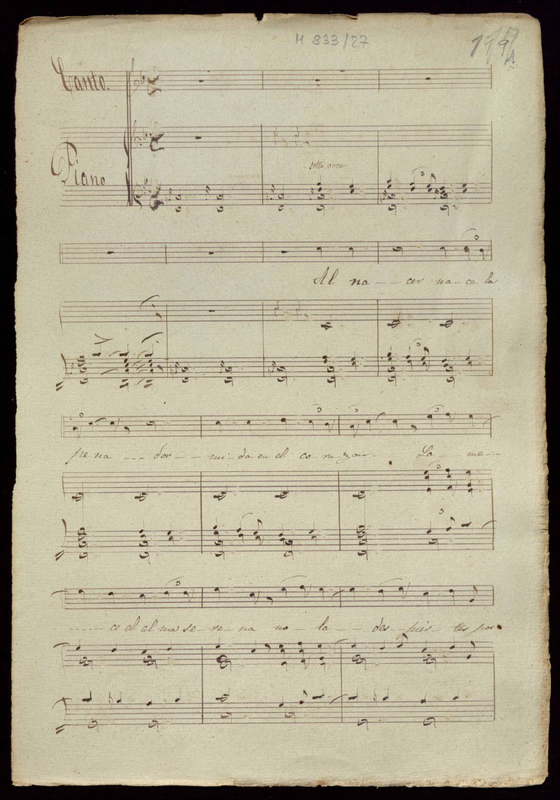 M 833/27
Canto.
Piano
sotto voce
Al na - - cer na - ce la
pe na - - - dor - - mi - da en el co - ra zon. La me - -
- - - - ce el al ma se - re - na no - la - - des - pier - tes por